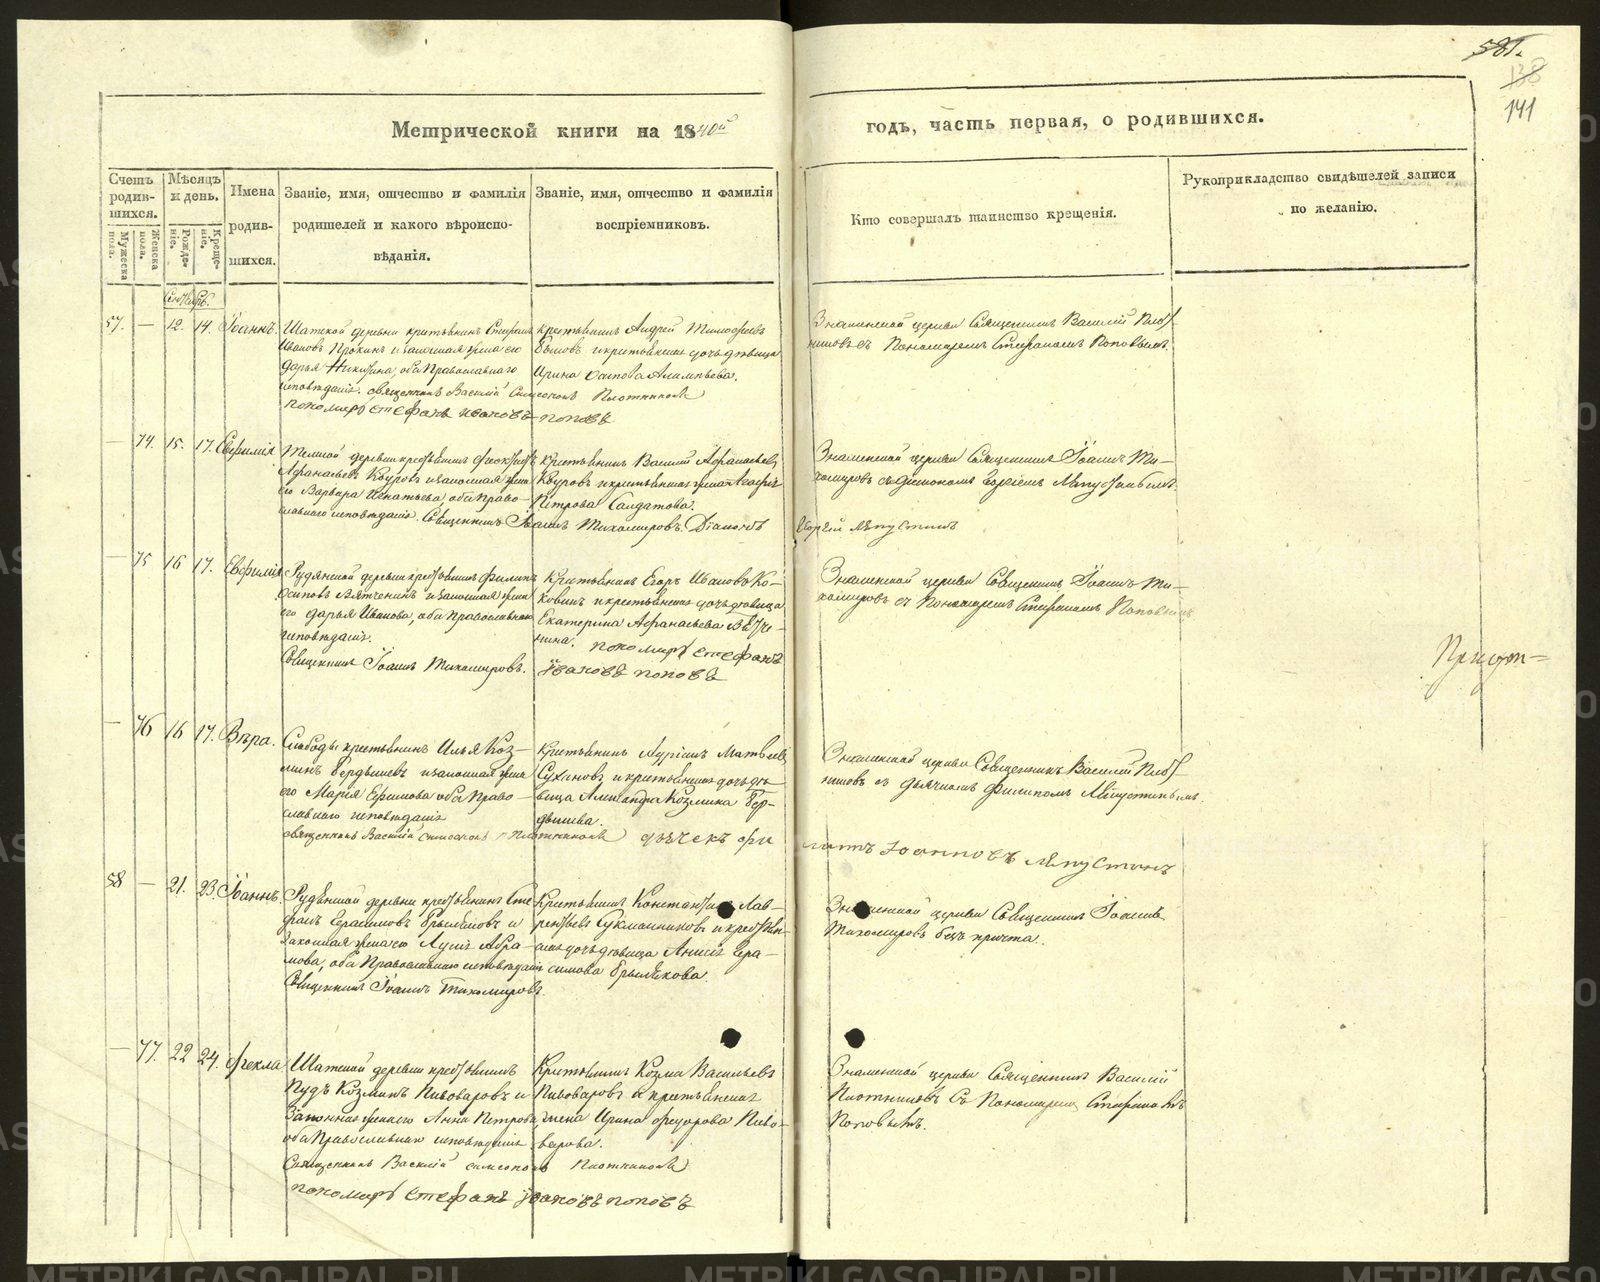 581.
138
141
Метрической книги на 1840й
годъ, часть первая, о родившихся.
Счетъ родившихся.
Мужеска пола.
Женска пола.
Мѣсяцъ и день.
Рожденіе.
Крещеніе.
Имена родившихся.
Званіе, имя, отчество и фамилія
родителей и какого вѣроиспо-
вѣданія.
Званіе, имя, отчество и фамилія
воспріемниковъ.
Кто совершалъ таинство крещенія.
Рукоприкладство свидѣтелей записи
по желанію.
57. — 12. 14. Іоаннъ.
Шатской деревни крестьянинъ Стефанъ
Ивановъ Прокинъ и законная жена его
Дарья Никитина, оба Православнаго
исповѣданія. священникъ Василій Симеоновъ Плотниковъ
пономарь Стефанъ Ивановъ Поповъ
крестьянинъ Андрей Тимофеевъ
и крестьянская дочь дѣвица
Ирина Осипова
Знаменской церкви Священникъ Василій Плот-
никовъ съ Пономаремъ Стефаномъ Поповымъ.
— 74. 15. 17. Евфимія
деревни крестьянинъ Феоктистъ
Афанасьевъ и законная жена
его Варвара Игнатьева, оба Право-
славнаго исповѣданія. Священникъ Іоаннъ Тихомировъ. Діаконъ
Крестьянинъ Василій Афанасьевъ
и крестьянская жена Агафія
Петрова Салдатова.
Знаменской церкви Священникъ Іоаннъ Ти-
хомировъ съ діакономъ Георгіемъ Ляпустинымъ.
Георгій Ляпустинъ
— 75 16 17. Евфимія
Рудянской деревни крестьянинъ Филипъ
Осиповъ Вятченинъ и законная жена
его Дарья Иванова, оба Православнаго
исповѣданія.
Священникъ Іоаннъ Тихомировъ.
Крестьянинъ Егоръ Ивановъ Ко-
ковинъ и крестьянская дочь дѣвица
Екатерина Афанасьева Вятче-
нина. пономарь Стефанъ
Ивановъ Поповъ
Знаменской церкви Священникъ Іоаннъ Ти-
хомировъ съ Пономаремъ Стефаномъ Поповымъ
— 76 16 17. Вѣра.
Слободы крестьянинъ Илья Коз-
минъ Бердышевъ и законная жена
его Марія Ефимова оба Право-
славнаго исповѣданія
священникъ Василій Симеоновъ Плотниковъ дьячекъ Фи
Крестьянинъ Адріанъ Матвѣевъ
Сухановъ и крестьянская дочь дѣ-
вица Александра Козмина Бер-
дышева.
Знаменской церкви Священникъ Василій Плот-
никовъ съ дьячкомъ Филипомъ Ляпустинымъ.
липпъ Іоанновъ Ляпустинъ
58 — 21. 23. Іоаннъ.
Рудянской деревни крестьянинъ Сте
фанъ Герасимовъ Брылековъ и
законная жена его Авра-
мова, оба Православнаго исповѣданія
Священникъ Іоаннъ Тихомировъ.
Крестьянинъ Константинъ Лав-
рентьевъ Сукманниковъ и крестьян-
ская дочь дѣвица Анисія Гера-
симова Брылекова.
Знаменской церкви Священникъ Іоаннъ
Тихомировъ безъ причта.
— 77. 22 24. Фекла
Шатской деревни крестьянинъ
Пудъ Козминъ Пивоваровъ и
законная жена его Анна Петрова,
оба Православнаго исповѣданія
Священникъ Василій Симеоновъ Плотниковъ
пономарь Стефанъ Ивановъ Поповъ
Крестьянинъ Козма Васильевъ
Пивоваровъ и крестьянская
жена Ирина Федорова Пиво-
варова.
Знаменской церкви Священникъ Василій
Плотниковъ Съ Пономаремъ Стефаномъ
Поповымъ.
METRIKI.GASO-URAL.RU